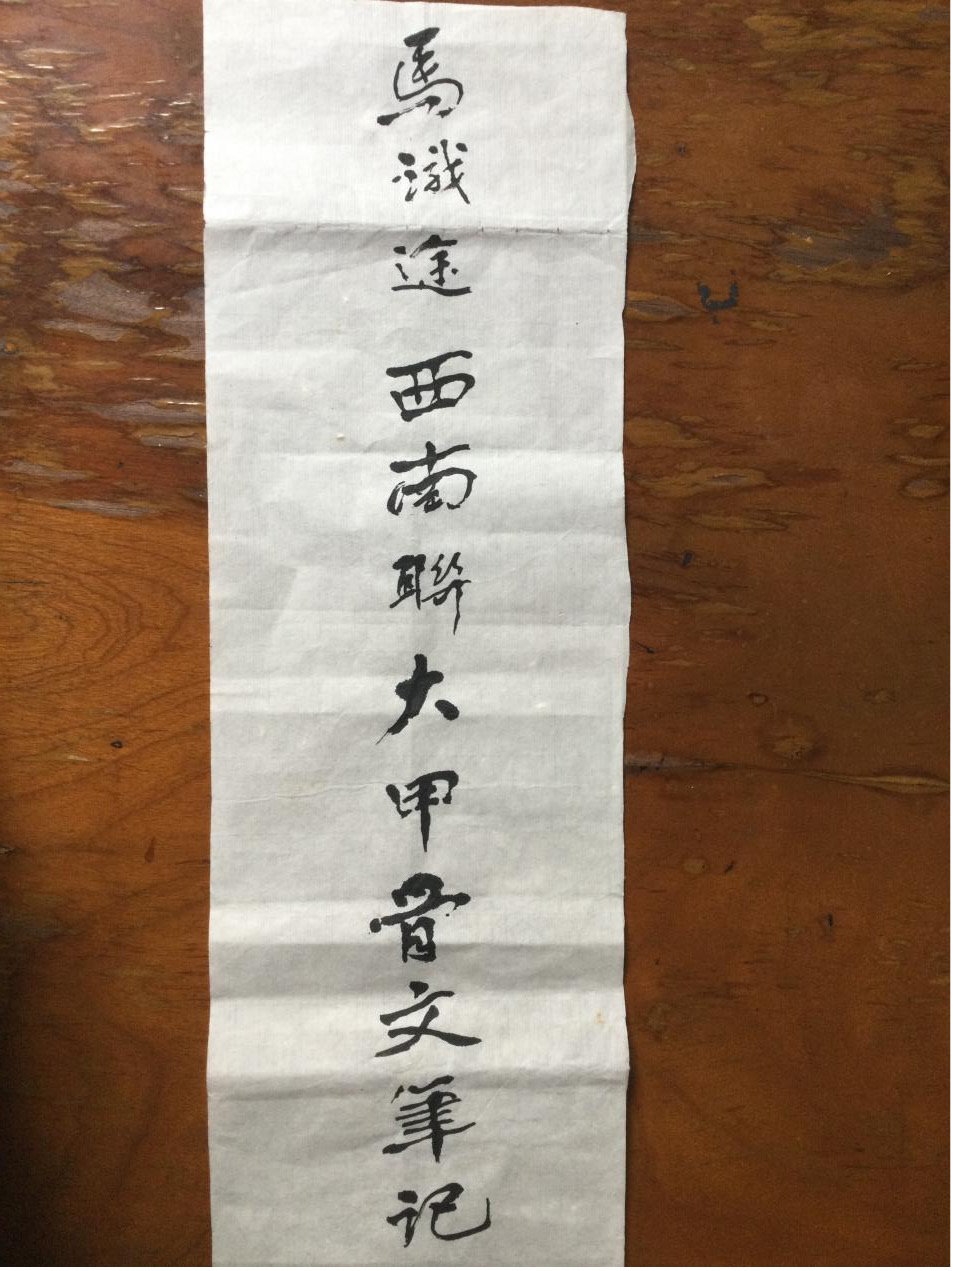 馬識途西南聯大甲骨文筆记